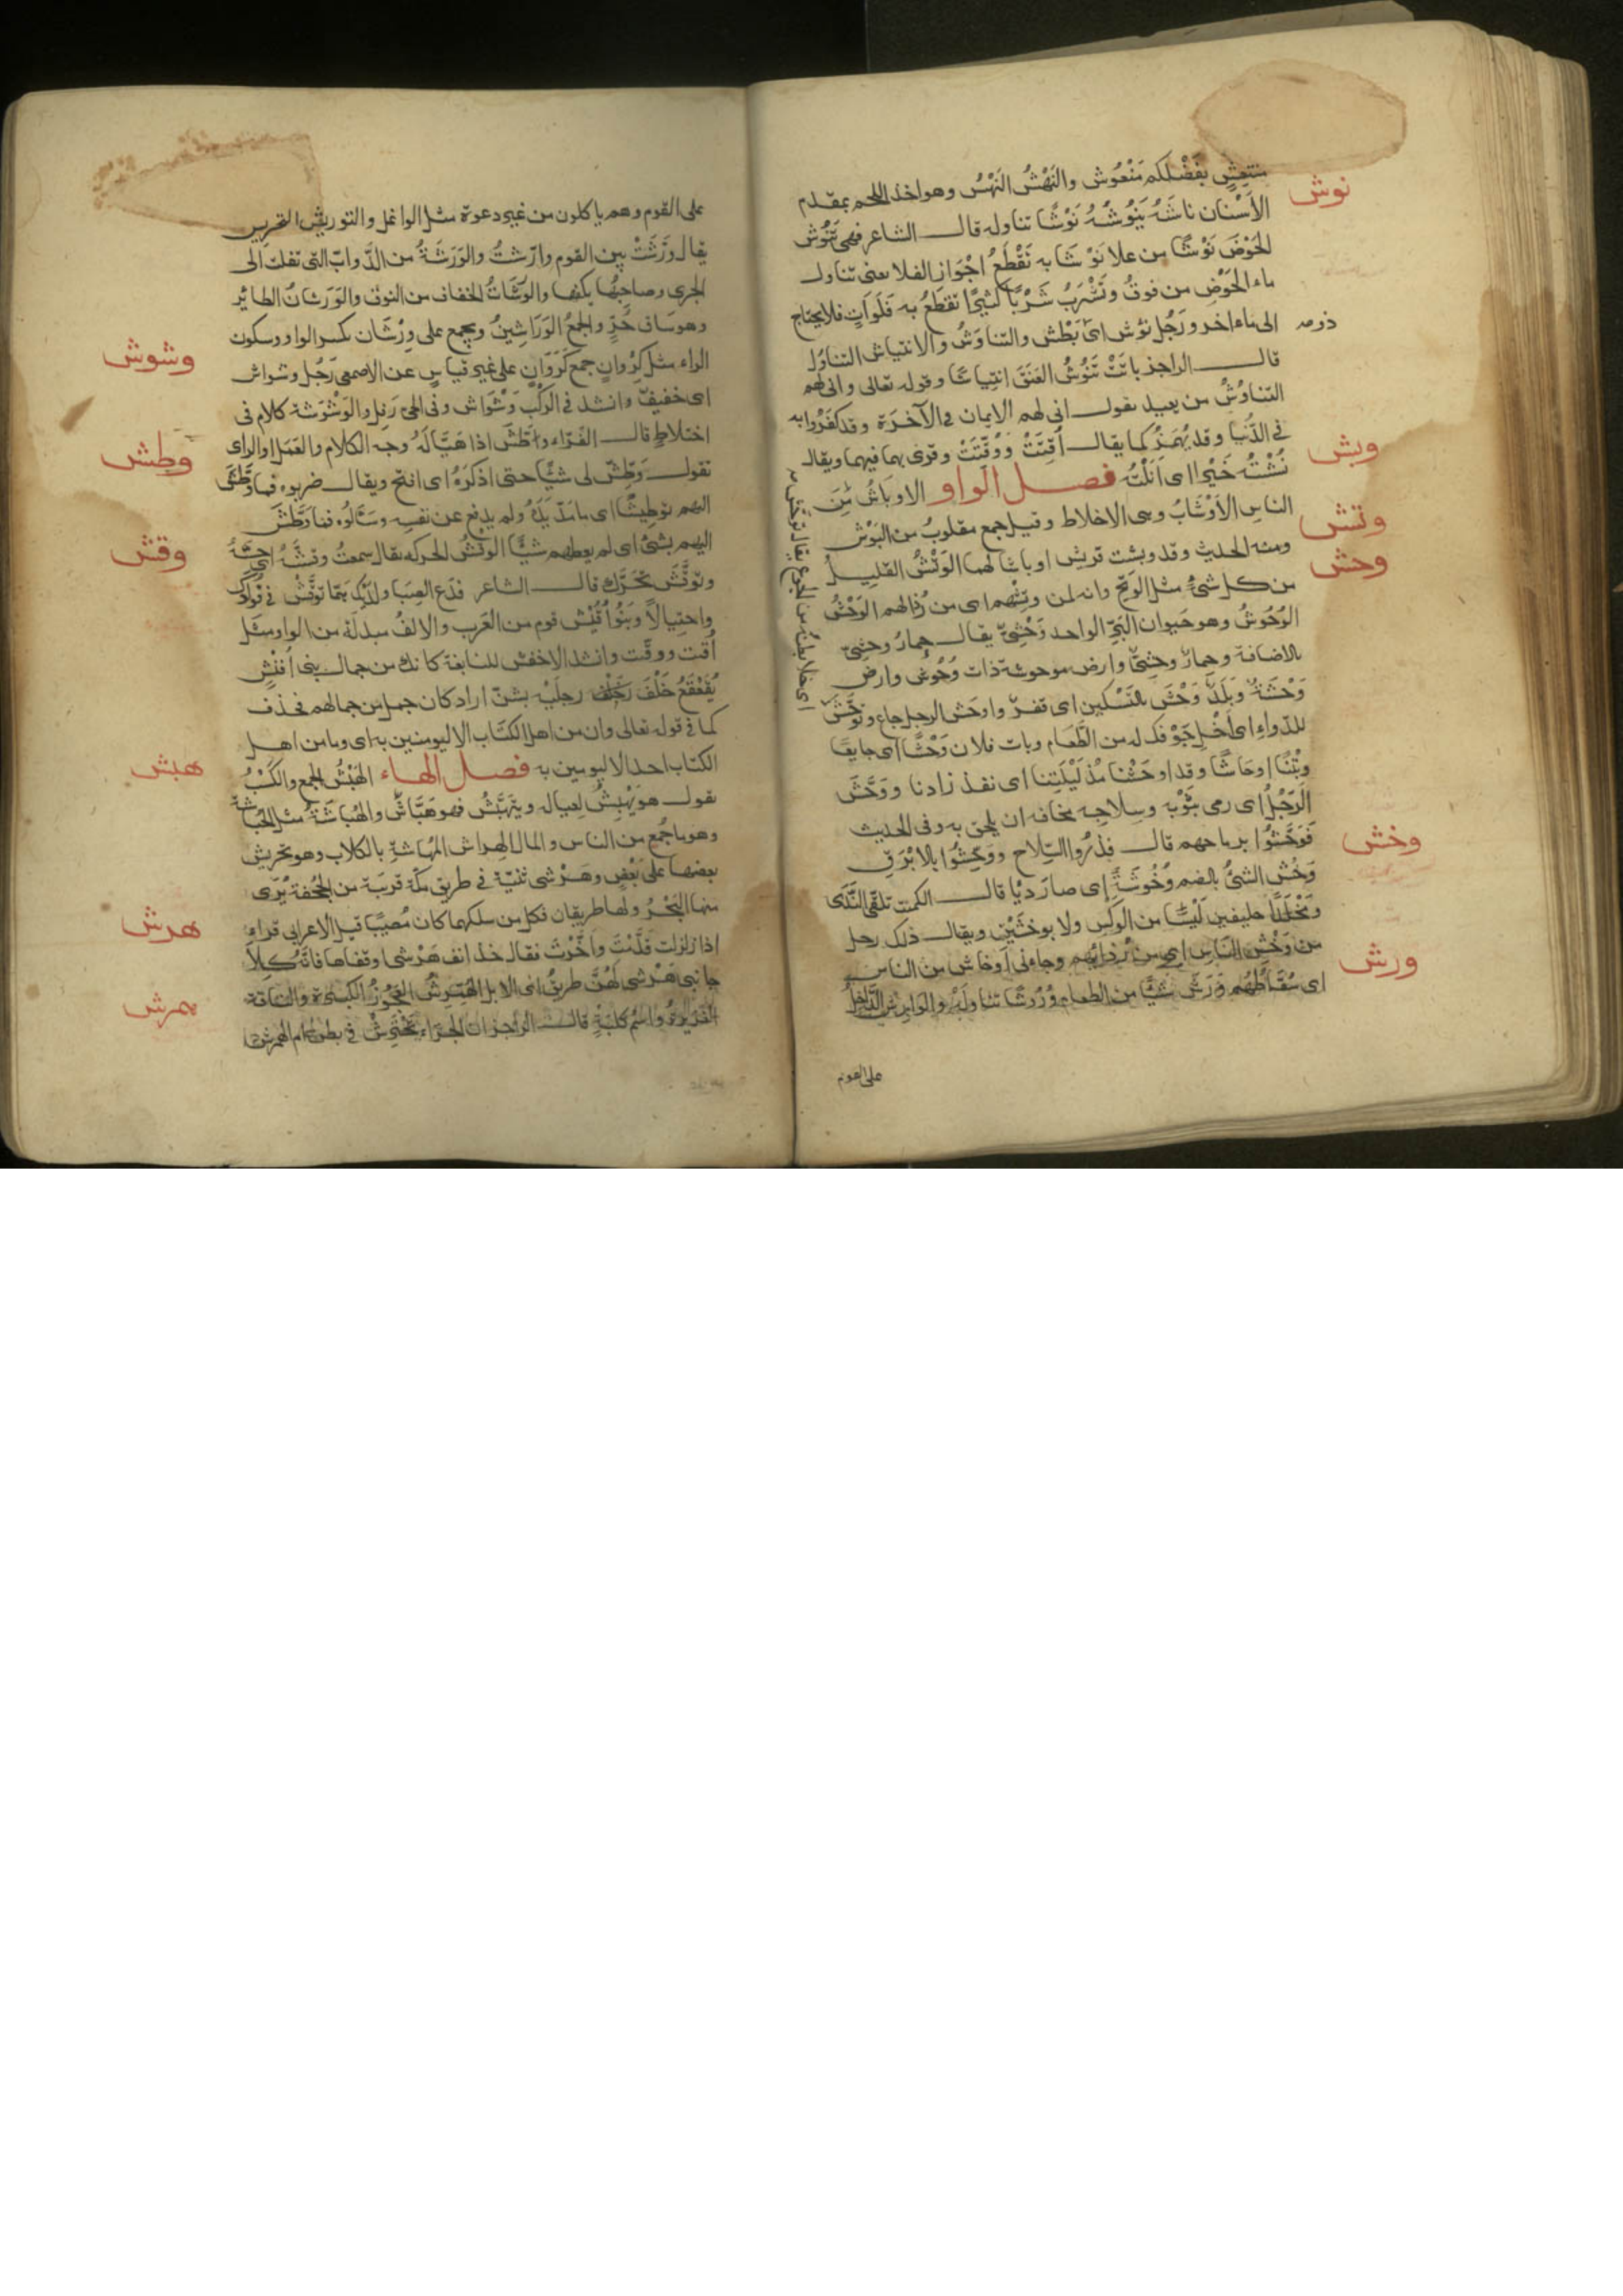 نوش
منتعش بفَضْلكم مَنْعُوش والنَهْشُ النَهْسُ وهو اخذ اللحم بمقدم
الأَسْنان نَاشَهُ يَنُوشُهُ نَوْشًا تناوله قال الشاعر فهى تَنُوش
الحَوْضَ نَوْشًا من علا نَوْشًا به تَقْطَعُ اجْوَاز الفلا يعنى تتناول
ماء الحَوْضِ من فوقُ وتَشْرَبُ شَرْبًا كثيرًا تقطَعُ به فَلَوَاتٍ فلا يحتاج
الى ماء اخر ورَجُل نَؤُش اى بَطْش والتناوُشُ والانتياش التناوُل
قال الراجز باتَتْ تَنُوشُ العَنَقَ انتِيَاشًا وقوله تعالى وانى لهم
التناوُشُ من بعيد يقول انى لهم الايمان فى الآخِرَة وقد كفَرُوا به
فى الدُّنْيا وقد يُهْمَزُ كما يقال أُقِّتَتْ وَوُقِّتَتْ وقرى بهما فيهما ويقال
نُشْتُه خَيْرًا اى اَنَلْتُه فصل الواو الاوبَاشُ مِنَ
وبش
الناسِ الأَوْشَابُ وهى الاخلاط وقيل جمع مقلوبُ من البَوْش
ومنه الحديث وقد وبشت قريش اوباشا لهما الوَتْشُ القَليلُ
وتش
من كل شىءٍ مثل الوَتِح وانه لمن وتشهم اى من رُذالهم الوَحْشُ
وحش
الوُحُوشُ وهو حَيوان البَرِّ الواحد وَحْشِىّ يقال حمارُ وحشىّ
بالاضافة وحمارٌ وحشىٌّ وارض موحوشة ذات وُحُوش وارض
وَحْشَةٌ وبَلَدٌ وَحْش بالتسكين اى قفرٌ واوحَش الرجل جاع وتَوَحَّش
للدّواءِ اى أَخْلِ جَوْفك له من الطَّعَام وبات فلان وَحْشًا اى جايعًا
وبِتْنَا اوحاشًا وقد اوحَشْنا مُذْ لَيْلَتِنا اى نفذ زادنا ووَحَّشَ
الرَجُلُ اى رمى بثَوْبه وسِلاحِه مخافه ان يلحق به وفى الحديث
فَوَحَّشُوا برماحهم قال فذَرُوا السِّلاح ووحِّشُوا بالابْرَقِ
وخش
وَخُشَ الشئُ بالضم وُخُوشَةً اى صارَ رديًا قال الكميت تلقى النَّدَى
ومَخْلَدًا حليفين لَيْسَا من الوَكْسِ ولا بوخشَيْنِ ويقال ذلك رجل
من وَخْشِ الناسِ اى من رُذالهم وجاءنى اَوخاش من الناس
ورش
اى سُقّاطهم وَرَشَ شَيًّا من الطعام وُرُوشًا تناوله والوَارِشُ الدَّاخِلُ
على القوم
على القوم وهم ياكلون من غير دعوة مثل الواغل والتوريش التحريش
يقال وَرَّشَتْ بين القوم وارّشتُ والوَرَشَةُ من الدَّوابّ التى تفلت الى
الجرى وصاحبُها يكفها والوَرَشَاتُ الخفاف من النوق والوَرَشَان الطائر
وهو ساق حُرٍّ والجمع الوَرَاشِينُ ويجمع على وِرْشَان بكسر الواو وسكون
الراء مثل كِرْوانٍ جمع كَرَوَانٍ على غير قياسٍ عن الاصمعى رَجُل وشواش
وشوش
اى خفيفٌ وانشد فى الرَكْب وَشْوَاش وفى الحى رَفِل والوَشْوَشة كلام فى
اختلاطٍ قال الفَرّاء وطَّشَ اذا هَيَّا لَهُ وجه الكلام والعَمَل او الراى
وطش
تقول وَطِّش لى شيًّا حتى اذكُرَهُ اى افتح ويقال ضربوه فما وَطَّشَ
اليهم توطِيشًا اى ما مَدّ يَدَهُ ولم يدفع عن نفسِه وسَالُوه فما وَطَّشَ
اليهم بشئ اى لم يعطهم شيًّا الوَقْشُ الحركه يقال سمعتُ وقشَهُ اى حِسَّهُ
وقش
وتوَقَّشَ تحَرَّك قال الشاعر فدَع الصِبَا ولديك همًّا توقَّشَ فى فوادك
واحتيالاً وبَنُوا أُقَيْش قوم من العَرب والالفُ مبدلة من الواو مثل
أُقتت ووقّت وانشد الاخفش للنابغة كانك من جمال بنى اُقَيْش
يُقَعْقَعُ خَلْفَ رجلَيْهِ بشنّ اراد كان جمل من جمالهم فحذف
كما فى قوله تعالى وان من اهل الكتاب الا ليومنين به اى وما من اهل
الكتاب احد الا ليومنين به فصل الهاء الهَبْشُ الجمع والكَسْبُ
هبش
يقول هو يَهْبِشُ لعياله ويتهَبَّشُ فهو هَبَّاشٌ والهُبَاشَةُ مثل الحُبَاشة
وهو ما جُمع من الناس والمال الهِرَاش المُهاشَة بالكلاب وهو تحريش
بعضها على بَعْض وهَرْشى ثنيّة فى طريق مكّة قريبة من الجُحفة يُرَى
هرش
منها البَحْرُ ولها طريقان فكل من سلكهما كان مُصيبًا قيل لاعرابى قراء
اذا زلزلت قدَّمْتَ واَخَّرْتَ فقال خذا انف هَرْشى او قفاها فانَّه كِلاَ
جانبى هَرْشى لَهُنَّ طريقُ اى الابل الهَمَّرِشُ العَجُوزُ الكبيرة والناقة
همرش
الغزيرة واسم كلبةٍ قال الراجز ان الجراء تَخْتَرِشْ فى بطن ام الهمرش